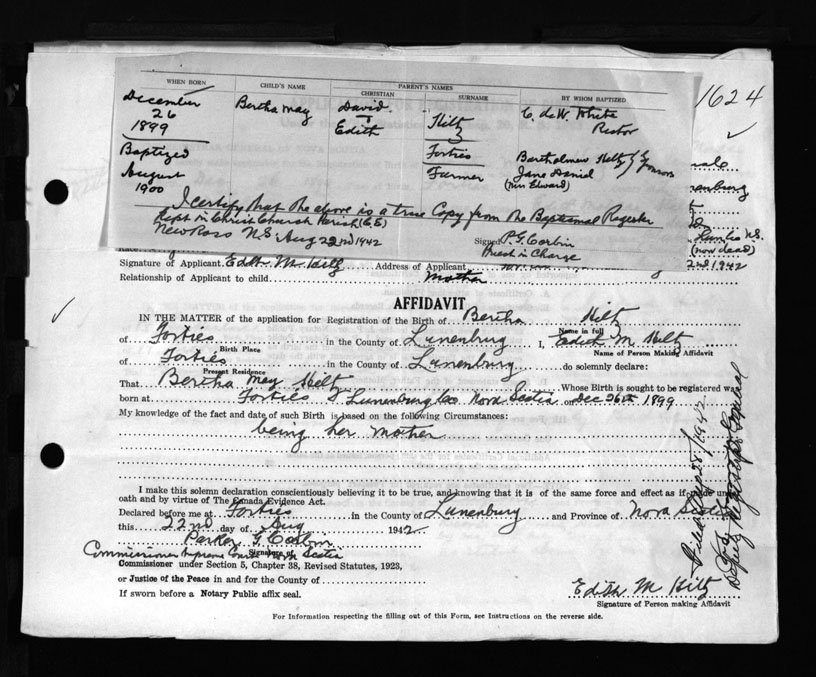 WHEN BORN CHILD'S NAME PARENT'S NAMES BY WHOM BAPTIZED
CHRISTIAN SURNAME
December 26 1899
Bertha May
David
Edith
Hiltz
Forties
Farmer
C. deW. White
Rector
Baptized August 1900
Bartholmew Hiltz
Jane Daniel
(Mrs Edward)
I certify that the above is a true Copy from the Baptismal Register
Kept in Christ Church Parish (C.E)
New Ross N.S. Aug 22nd 1942
Signed P. G. Corbin
Priest in Charge
1624
(now dead)
Signature of Applicant Edith M Hiltz Address of Applicant
2nd 1942
Relationship of Applicant to child Mother
AFFIDAVIT
IN THE MATTER of the application for Registration of the Birth of Bertha Hiltz
Name in full
of Forties in the County of Lunenburg I, Edith M. Hiltz
Birth Place Name of Person Making Affidavit
of Forties in the County of Lunenburg do solemnly declare:
Present Residence
That Bertha May Hiltz Whose Birth is sought to be registered was
born at Forties Lunenburg Co. Nova Scotia on Dec 26th 1899
My knowledge of the fact and date of such Birth is based on the following Circumstances:
being her mother
I make this solemn declaration conscientiously believing it to be true, and knowing that it is of the same force and effect as if made under
oath and by virtue of The Canada Evidence Act.
Declared before me at Forties in the County of Lunenburg and Province of Nova Scotia
this 22nd day of Aug 1942
Parker G Corbin
Signature of
Commissioner Supreme Court Nova Scotia
Commissioner under Section 5, Chapter 38, Revised Statutes, 1923,
or Justice of the Peace in and for the County of
If sworn before a Notary Public affix seal.
Edith M Hiltz
Signature of Person making Affidavit
For Information respecting the filling out of this Form, see Instructions on the reverse side.
Filed Aug 28/1942
Deputy Registrar General